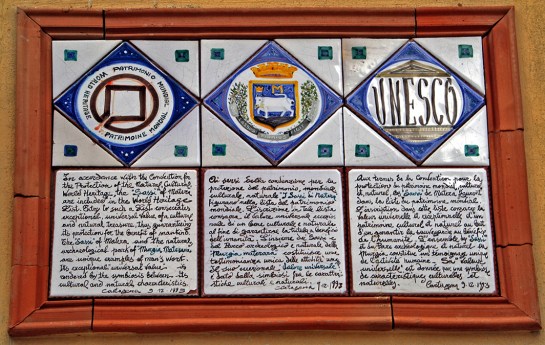 WORLD HERITAGE PATRIMONIO MUNDIAL
PATRIMOINE MONDIAL
UNESCO
In accordance with the Convention for
the Protection of the Natural Cultural
World Heritage, the "Sassi" of Matera
are included in the World Heritage
List. Entry to such a List consecrates
exceptional universal value of a cultural
and natural treasure, thus guaranteeing
its protection for the benefit of mankind.
The Sassi of Matera, and the natural
archeological park of Murgia Materana
are unique examples of man's work.
Its exceptional universal value is
rendered by the symbiosis between its
cultural and natural characteristics.
9.12.1993
Ai sensi della convenzione per la
protezione del patrimonio mondiale
culturale e naturale "I Sassi" di Matera
figurano nella lista del patrimonio
mondiale. L'iscrizione in tale lista
valore universale eccezionale
di un bene culturale e naturale
al fine di garantirne la tutela a beneficio
dell'umanità. L'insieme dei Sassi e
del Parco archeologico e naturale della
Murgia materana costituisce una
testimonianza unica della attività umana.
Il suo eccezionale valore universale
è dato dalla simbiosi fra le caratteri-
stiche culturali e naturali.
9.12.1993
Aux termes de la Convention pour la
protection du patrimoine mondial, culturel
et naturel, les Sassi de Matera figurent
dans la liste du patrimoine mondial.
L'inscription dans cette liste consacre la
valeur universelle et exceptionnelle d'un
patrimoine culturel et naturel au but
d'en garantir la sauvegarde au bénéfice
de l'humanité. L'ensemble des Sassi
et du Parc archéologique et naturel de
Murgia constitue un témoignage unique
de l'activité humaine. Sa valeur
universelle est donnée par une symbiose
de caractéristiques culturelles et
naturelles.
9.12.1993